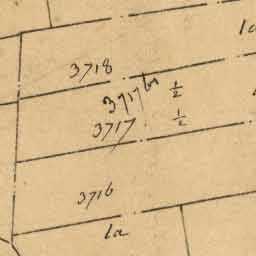 1a
3718
3717b
1/2
3717
1/2
3716
1a